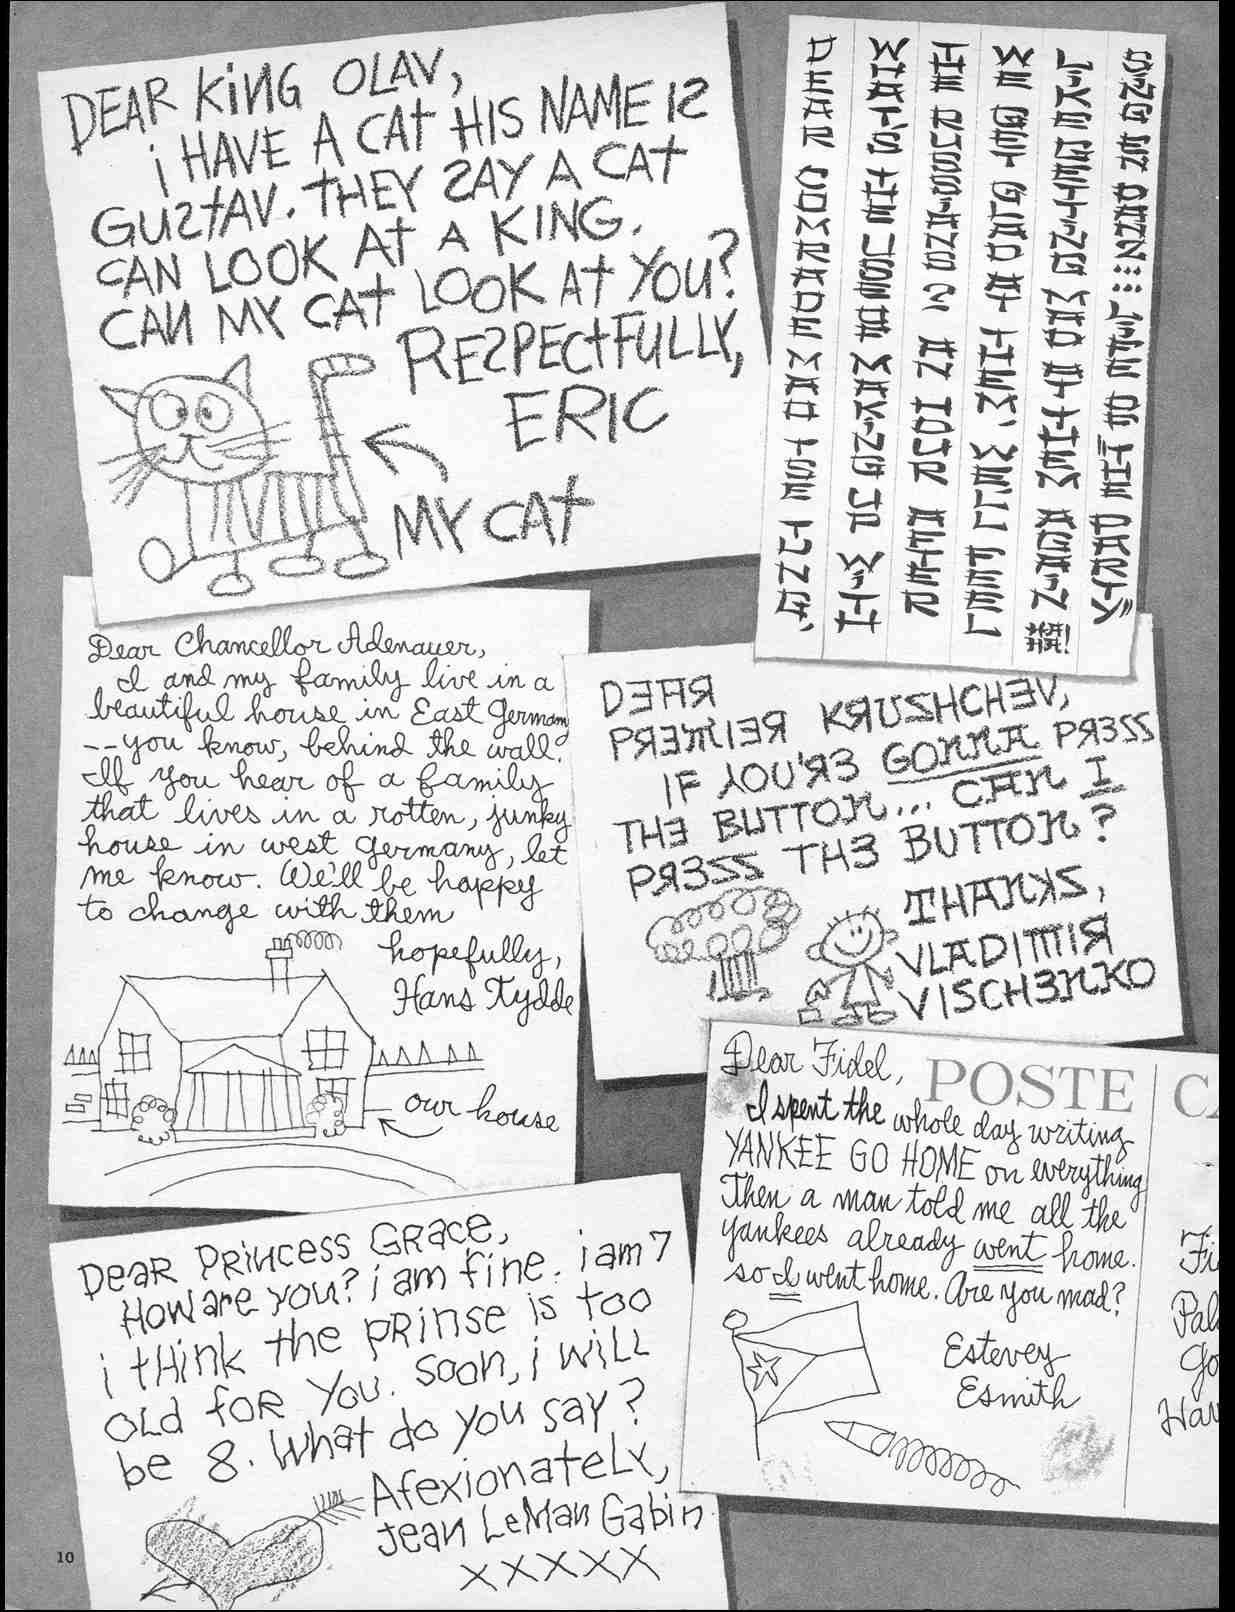 DEAR KING OLAV,
i HAVE A CAT HIS NAME IS
GUSTAV. THEY SAY A CAT
CAN LOOK AT A KING.
CAN MY CAT LOOK AT YOU?
RESPECTFULLY,
ERIC
MY CAT
DEAR COMRADE MAO TSE TUNG,
WHAT'S THE USE OF MAKING UP WITH
THE RUSSIANS? AN HOUR AFTER
WE GET GLAD AT THEM, WELL FEEL
LIKE GETTING MAD AT THEM AGAIN HA HA!
SING EN DANZ::: LIFE OF "THE PARTY"
Dear Chancellor Adenauer,
I and my family live in a
beautiful house in East Germany
--you know, behind the wall?
If you hear of a family
that lives in a rotten, junky
house in west Germany, let
me know. We'll be happy
to change with them
hopefully,
Hans Tydde
our house
DEAR
PREMIER KRUSHCHEV,
IF YOU'RE GONNA PRESS
THE BUTTON... CAN I
PRESS THE BUTTON?
THANKS,
VLADIMIR
VISCHENKO
Dear Fidel,
POSTE CA
I spent the whole day writing
YANKEE GO HOME on everything
Then a man told me all the
yankees already went home.
so I went home. Are you mad?
Estevey
Esmith
Fi
Pal
Go
Hav
Dear Princess Grace,
How are you? i am fine. i am 7
i think the prinse is too
old for you. soon, i will
be 8. What do you say?
Afexionately,
Jean LeMan Gabin
XXXXX
10